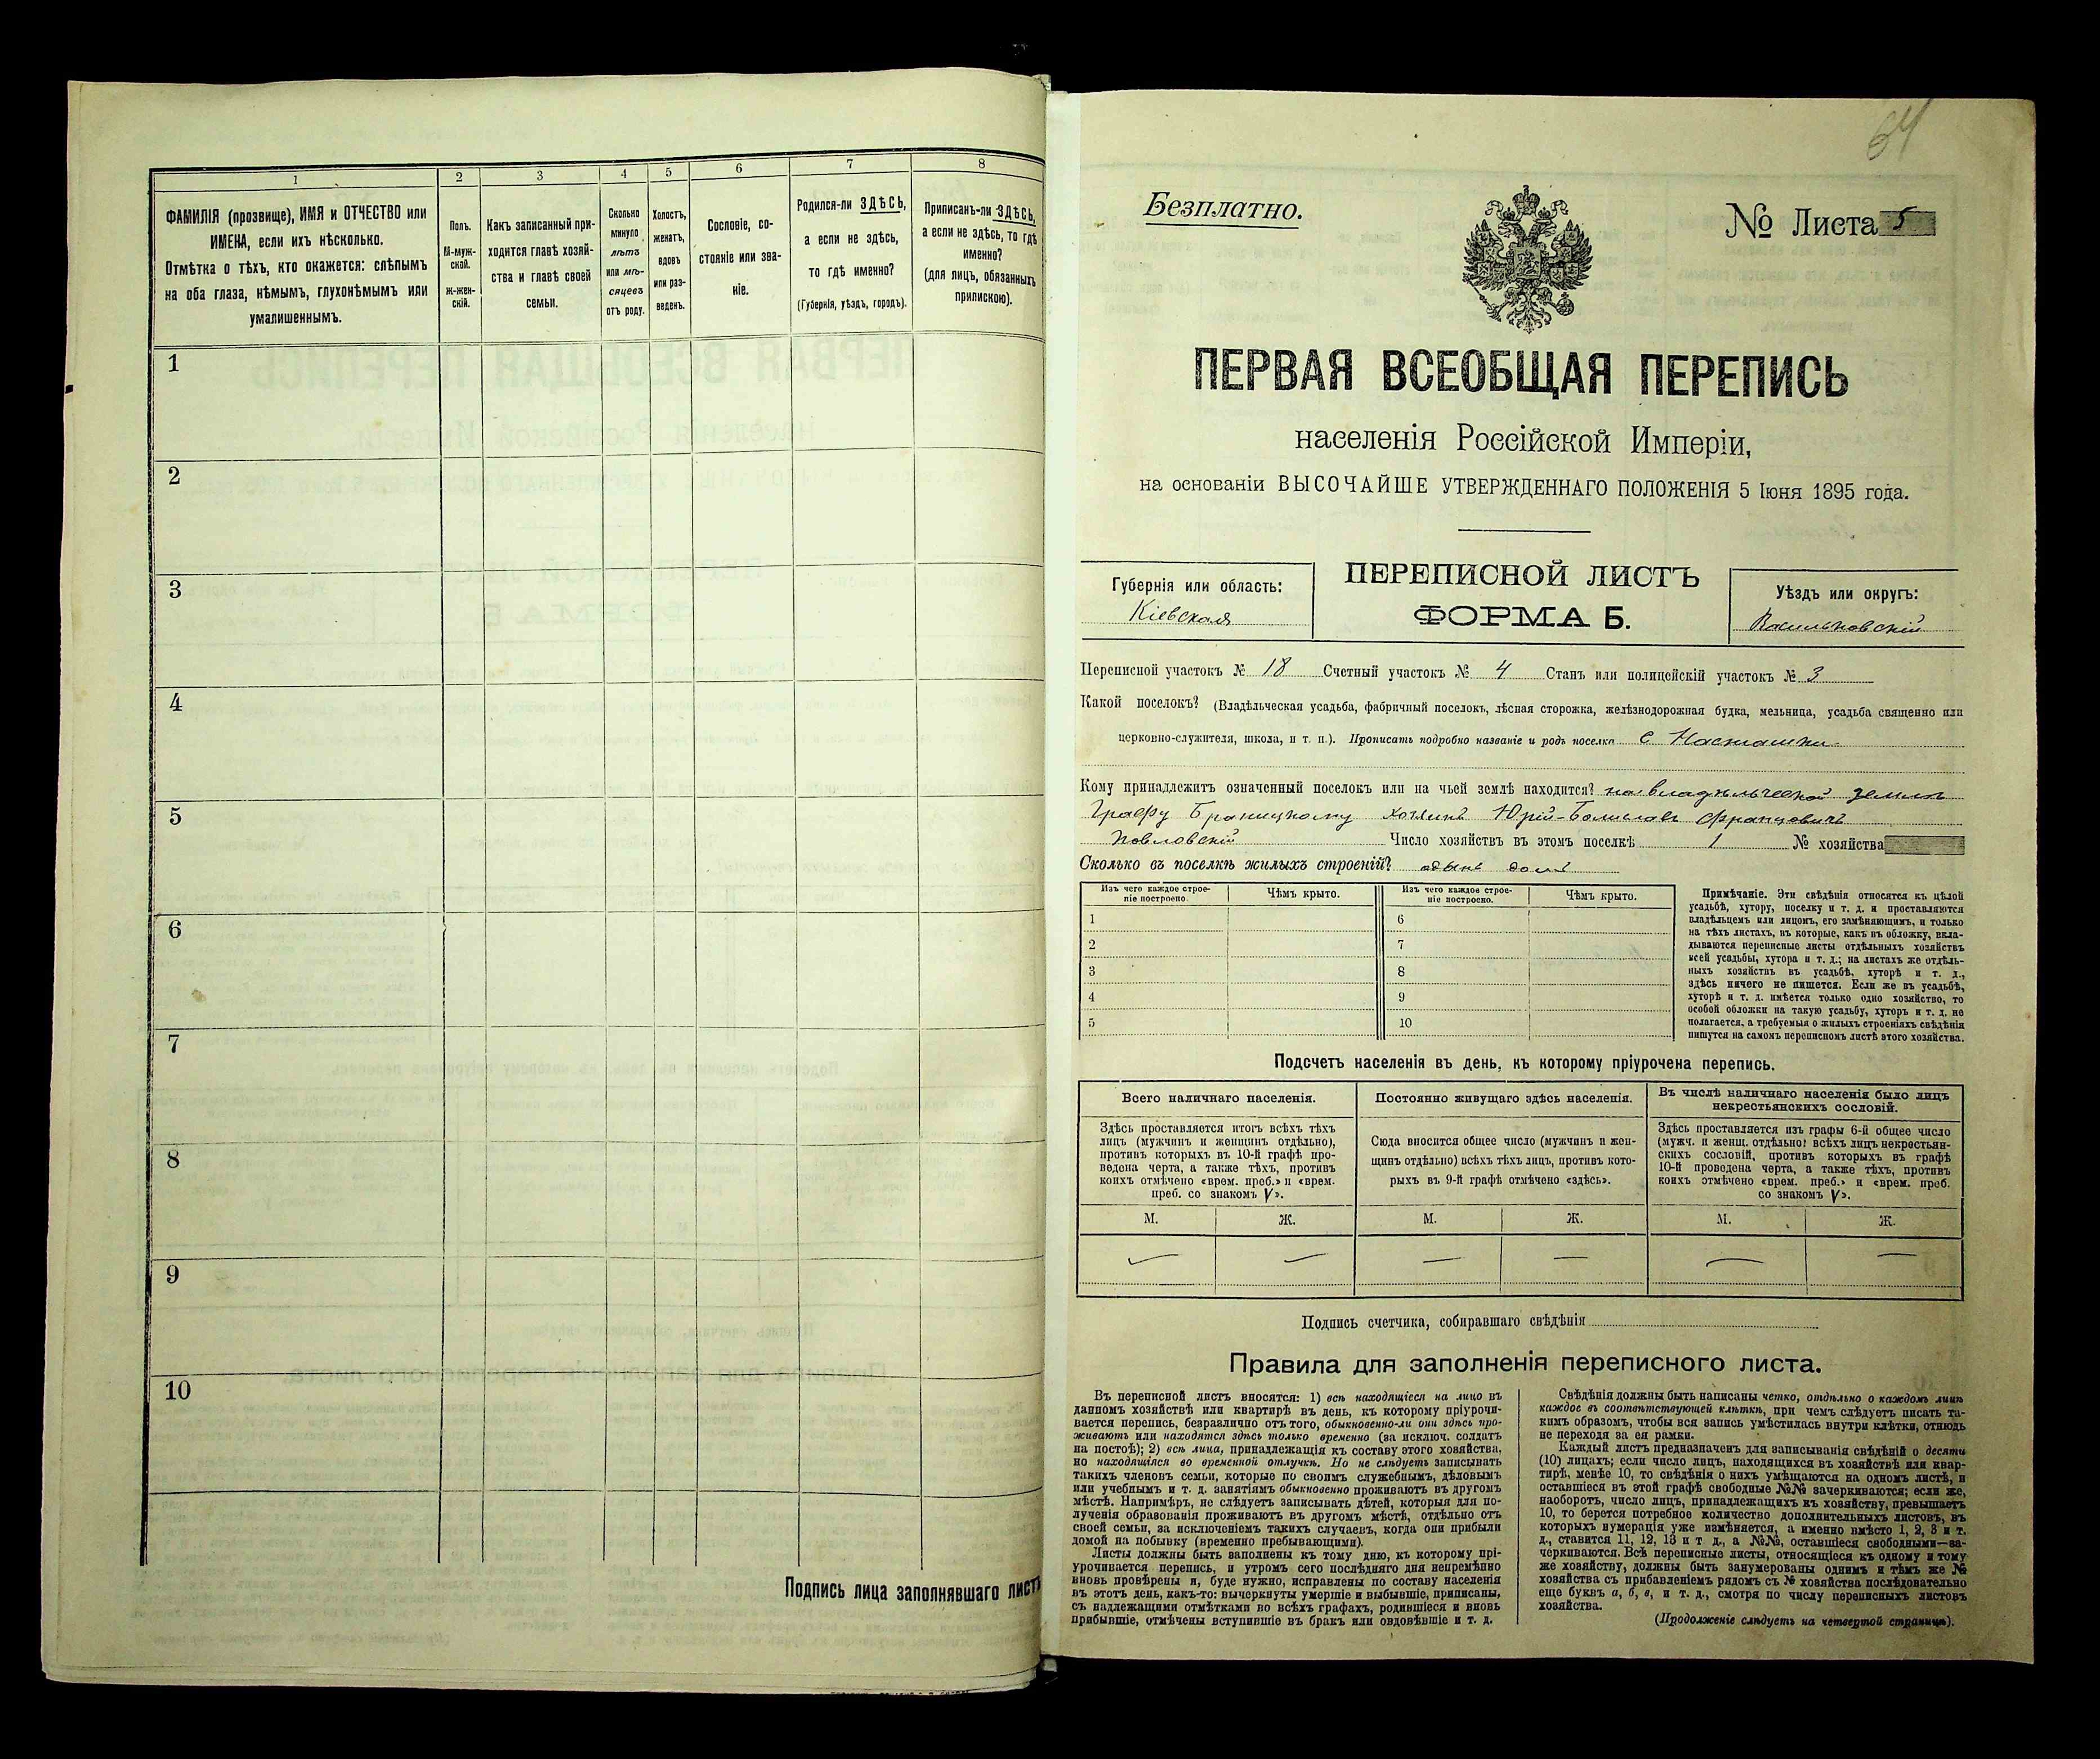 1
2
3
4
5
6
7
8
ФАМИЛІЯ (прозвище), ИМЯ и ОТЧЕСТВО или
ИМЕНА, если ихъ нѣсколько.
Отмѣтка о тѣхъ, кто окажется: слѣпымъ
на оба глаза, нѣмымъ, глухонѣмымъ или
умалишеннымъ.
Полъ.
М-муж-
ской.
ж-жен-
скій.
Какъ записанный при-
ходится главѣ хозяй-
ства и главѣ своей
семьи.
Сколько
минуло
лѣтъ
или мѣ-
сяцевъ
отъ роду.
Холостъ,
женатъ,
вдовъ
или раз-
веденъ.
Сословіе, со-
стояніе или зва-
ніе.
Родился-ли ЗДѢСЬ,
а если не здѣсь,
то гдѣ именно?
(Губернія, уѣздъ, городъ).
Приписанъ-ли ЗДѢСЬ,
а если не здѣсь, то гдѣ
именно?
(для лицъ, обязанныхъ
припискою).
1
2
3
4
5
6
7
8
9
10
Подпись лица заполнявшаго листъ
64
Безплатно.
№ Листа 5
ПЕРВАЯ ВСЕОБЩАЯ ПЕРЕПИСЬ
населенія Россійской Имперіи,
на основаніи ВЫСОЧАЙШЕ УТВЕРЖДЕННАГО ПОЛОЖЕНІЯ 5 Іюня 1895 года.
Губернія или область:
Кіевская
ПЕРЕПИСНОЙ ЛИСТЪ
ФОРМА Б.
Уѣздъ или округъ:
Васильковскій
Переписной участокъ № 18 Счетный участокъ № 4 Станъ или полицейскій участокъ № 3
Какой поселокъ? (Владѣльческая усадьба, фабричный поселокъ, лѣсная сторожка, желѣзнодорожная будка, мельница, усадьба священно или
церковно-служителя, школа, и т. п.). Прописать подробно названіе и родъ поселка с Насташки
Кому принадлежитъ означенный поселокъ или на чьей землѣ находится? на владѣльческой землѣ
Графу Браницкому хозяинъ Юрій-Болиславъ Францовичъ
Павловскій Число хозяйствъ въ этомъ поселкѣ 1 № хозяйства
Сколько въ поселкѣ жилыхъ строеній? одынъ домъ
Изъ чего каждое строе-
ніе построено.
Чѣмъ крыто.
Изъ чего каждое строе-
ніе построено.
Чѣмъ крыто.
1
2
3
4
5
6
7
8
9
10
Примѣчаніе. Эти свѣдѣнія относятся къ цѣлой
усадьбѣ, хутору, поселку и т. д. и проставляются
владѣльцемъ или лицомъ, его замѣняющимъ, и только
на тѣхъ листахъ, въ которые, какъ въ обложку, вкла-
дываются переписные листы отдѣльныхъ хозяйствъ
всей усадьбы, хутора и т. д.; на листахъ же отдѣль-
ныхъ хозяйствъ въ усадьбѣ, хуторѣ и т. д.,
здѣсь ничего не пишется. Если же въ усадьбѣ,
хуторѣ и т. д. имѣется только одно хозяйство, то
особой обложки на такую усадьбу, хуторъ и т. д. не
полагается, а требуемыя о жилыхъ строеніяхъ свѣдѣнія
пишутся на самомъ переписномъ листѣ этого хозяйства.
Подсчетъ населенія въ день, къ которому пріурочена перепись.
Всего наличнаго населенія.
Постоянно живущаго здѣсь населенія.
Въ числѣ наличнаго населенія было лицъ
некрестьянскихъ сословій.
Здѣсь проставляется итогъ всѣхъ тѣхъ
лицъ (мужчинъ и женщинъ отдѣльно),
противъ которыхъ въ 10-й графѣ про-
ведена черта, а также тѣхъ, противъ
коихъ отмѣчено «врем. преб.» и «врем.
преб. со знакомъ V».
Сюда вносится общее число (мужчинъ и жен-
щинъ отдѣльно) всѣхъ тѣхъ лицъ, противъ кото-
рыхъ въ 9-й графѣ отмѣчено «здѣсь».
Здѣсь проставляется изъ графы 6-й общее число
(мужч. и женщ. отдѣльно) всѣхъ лицъ некрестьян-
скихъ сословій, противъ которыхъ въ графѣ
10-й проведена черта, а также тѣхъ, противъ
коихъ отмѣчено «врем. преб.» и «врем. преб.
со знакомъ V».
М.
Ж.
М.
Ж.
М.
Ж.
Подпись счетчика, собиравшаго свѣдѣнія
Правила для заполненія переписного листа.
Въ переписной листъ вносятся: 1) всѣ находящіеся на лицо въ
данномъ хозяйствѣ или квартирѣ въ день, къ которому пріурочи-
вается перепись, безразлично отъ того, обыкновенно-ли они здѣсь про-
живаютъ или находятся здѣсь только временно (за исключ. солдатъ
на постоѣ); 2) всѣ лица, принадлежащія къ составу этого хозяйства,
но находящіяся во временной отлучкѣ. Но не слѣдуетъ записывать
такихъ членовъ семьи, которые по своимъ служебнымъ, дѣловымъ
или учебнымъ и т. д. занятіямъ обыкновенно проживаютъ въ другомъ
мѣстѣ. Напримѣръ, не слѣдуетъ записывать дѣтей, которыя для по-
лученія образованія проживаютъ въ другомъ мѣстѣ, отдѣльно отъ
своей семьи, за исключеніемъ такихъ случаевъ, когда они прибыли
домой на побывку (временно пребывающими).
Листы должны быть заполнены къ тому дню, къ которому прі-
урочивается перепись, и утромъ сего послѣдняго дня непремѣнно
вновь провѣрены и, буде нужно, исправлены по составу населенія
въ этотъ день, какъ-то: вычеркнуты умершіе и выбывшіе, приписаны,
съ надлежащими отмѣтками во всѣхъ графахъ, родившіеся и вновь
прибывшіе, отмѣчены вступившіе въ бракъ или овдовѣвшіе и т. д.
Свѣдѣнія должны быть написаны четко, отдѣльно о каждомъ лицѣ
каждое въ соотвѣтствующей клѣткѣ, при чемъ слѣдуетъ писать та-
кимъ образомъ, чтобы вся запись умѣстилась внутри клѣтки, отнюдь
не переходя за ея рамки.
Каждый листъ предназначенъ для записыванія свѣдѣній о десяти
(10) лицахъ; если число лицъ, находящихся въ хозяйствѣ или квар-
тирѣ, менѣе 10, то свѣдѣнія о нихъ умѣщаются на одномъ листѣ, и
оставшіеся въ этой графѣ свободные №№ зачеркиваются; если же,
наоборотъ, число лицъ, принадлежащихъ къ хозяйству, превышаетъ
10, то берется потребное количество дополнительныхъ листовъ, въ
которыхъ нумерація уже измѣняется, а именно вмѣсто 1, 2, 3 и т.
д., ставится 11, 12, 13 и т д., а №№, оставшіеся свободными—за-
черкиваются. Всѣ переписные листы, относящіеся къ одному и тому
же хозяйству, должны быть занумерованы однимъ и тѣмъ же №
хозяйства съ прибавленіемъ рядомъ съ № хозяйства послѣдовательно
еще буквъ а, б, в, и т. д., смотря по числу переписныхъ листовъ
хозяйства.
(Продолженіе слѣдуетъ на четвертой страницѣ).